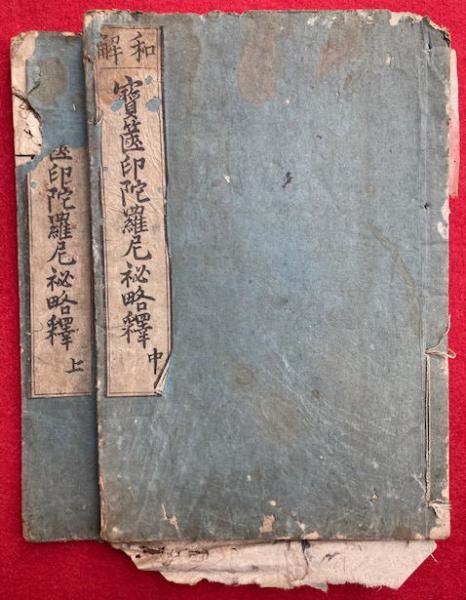 和解
寶篋印陀羅尼祕略釋
中
篋印陀羅尼祕略釋
上